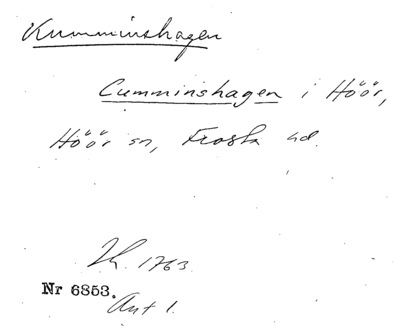 Kumminshagen
Cumminshagen i Höör,
Höör sn, Frosta hd.
1763
Nr 6853.
Ant 1.